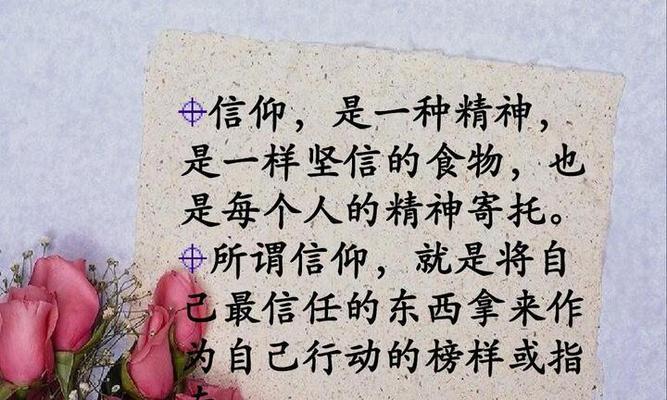 信仰，是一种精神，
是一样坚信的食物，也
是每个人的精神寄托。
所谓信仰，就是将自
己最信任的东西拿来作
为自己行动的榜样或指